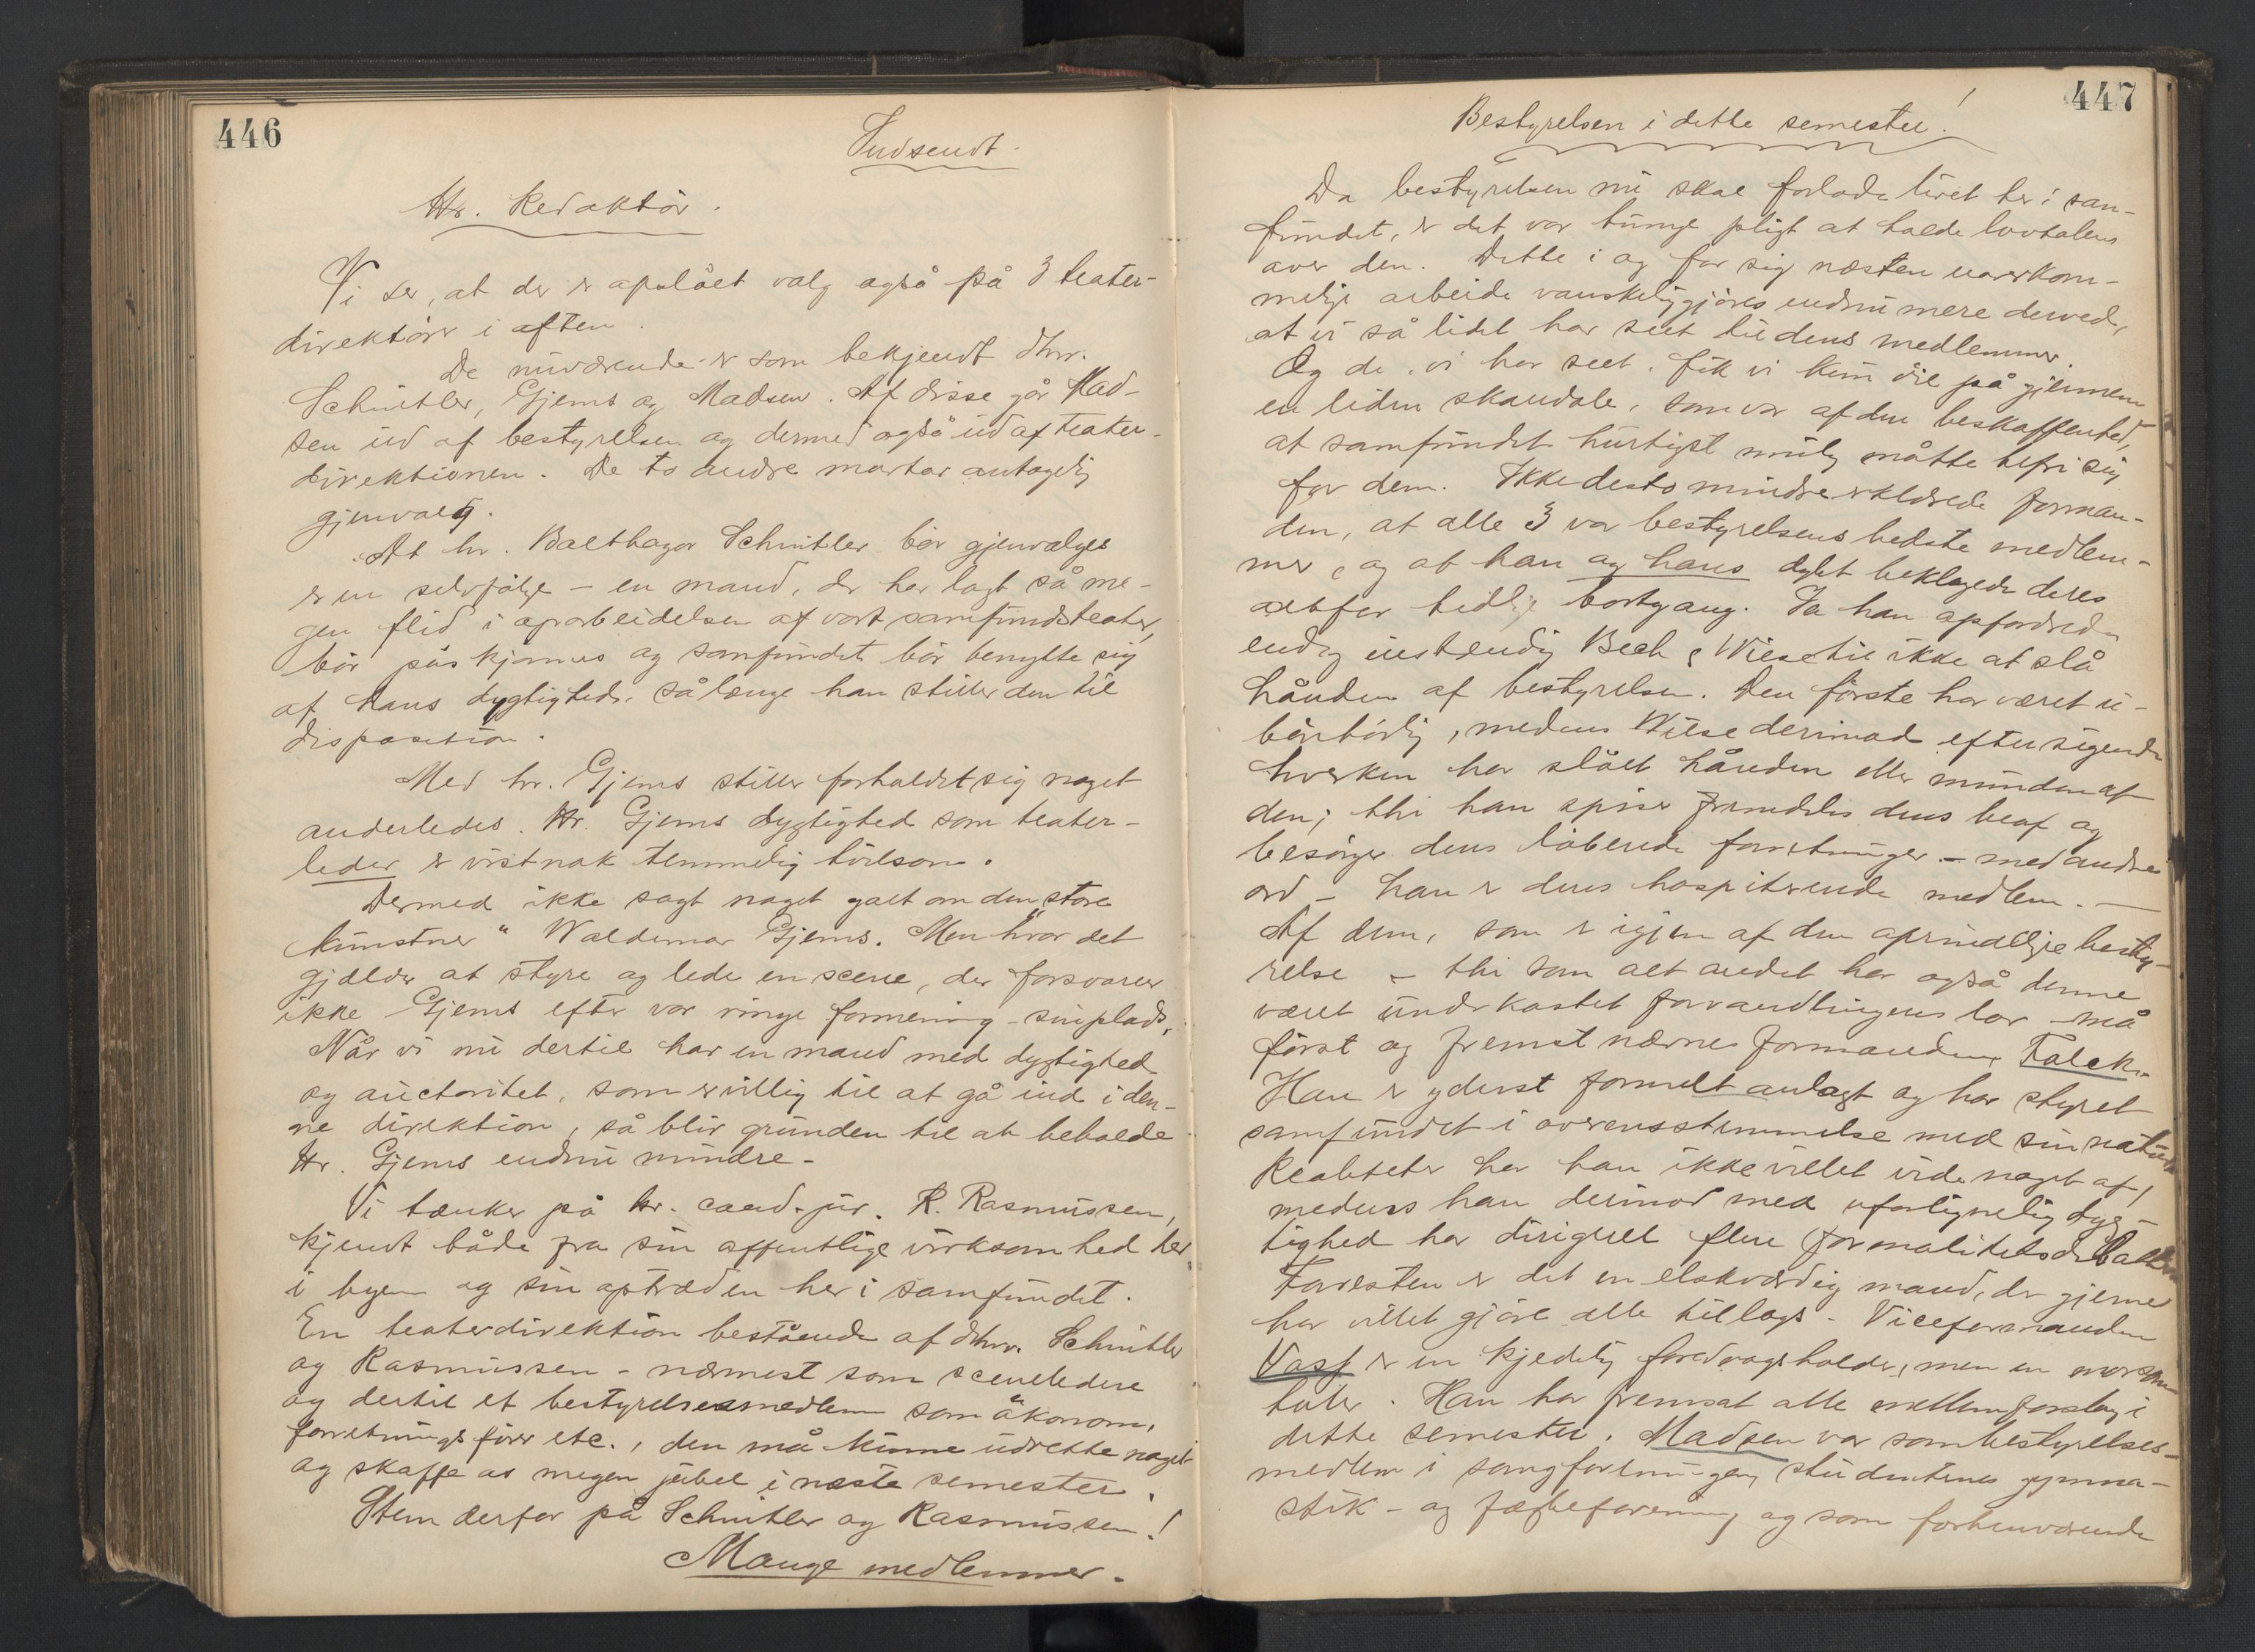 446
Indsendt.
Hr. Redaktör.
Vi ser, at der er opslået valg også på 3 teater-
direktörer i aften.
De nuværende er som bekjendt dhrr.
Schnitler, Gjems og Madsen. Af disse går Mad-
sen ud af bestyrelsen og dermed også ud af teater-
direktionen. De to andre mottar antagelig
gjenvalg.
At hr. Balthazar Schnitler bör gjenvælges
er en selvfölge – en mand, der har lagt så me-
gen flid i oparbeidelsen af vort samfundsteater,
bör påskjönnes og samfundet bör benytte sig
af hans dygtighed, sålænge han stiller den til
disposition.
Med hr. Gjems stiller forholdet sig noget
anderledes. Hr. Gjems dygtighed som teater-
leder er vistnok temmelig tvilsom.
Dermed ikke sagt noget galt om den "store
kunstner" Waldemar Gjems. Men hvor det
gjælder at styre og lede en scene, der forsvarer
ikke Gjems efter vor ringe formening sin plads.
Når vi nu dertil har en mand med dygtighed
og auctoritet, som er villig til at gå ind i den-
ne direktion, så blir grunden til at beholde
Hr. Gjems endnu mindre –
Vi tænker på hr. cand. jur. R. Rasmussen,
kjendt både fra sin offentlige virksomhed her
i byen og sin optræden her i samfundet.
En teaterdirektion bestående af dhrr. Schnitler
og Rasmussen – nærmest som sceneledere
og dertil et bestyrelsesmedlem som økonom,
forretningsförer etc., den må kunne udrette noget
og skaffe os megen jubel i næste semester.
Stem derfor på Schnitler og Rasmussen!
Mange medlemmer.
447
Bestyrelsen i dette semester!
Da bestyrelsen nu skal forlade livet her i sam-
fundet, er det vor tunge pligt at holde lovtalen
over den. Dette i og for sig næsten uoverkom-
melige arbeide vanskeliggjöres endnu mere derved,
at vi så lidet har seet til dens medlemmer.
Og de, vi har seet, fik vi kun öie på gjennem
en liden skandale, som var af den beskaffenhed,
at samfundet hurtigst mulig måtte befri sig
for dem. Ikke desto mindre erklærede forman-
den, at alle 3 var bestyrelsens bedste medlem-
mer, og at han og hans dybt beklagede deres
altfor tidlige bortgang. Ja han opfordrede
endog indstændig Bech & Wiese til ikke at slå
hånden af bestyrelsen. Den förste har været u-
bönhörlig, medens Wiese derimod eftersigende
hverken har slået hånden eller munden af
den; thi han spiser fremdeles dens beaf og
besörger dens löbende forretninger – med andre
ord – han er dens hospiterende medlem. —
Af dem, som er igjen af den oprindelige besty-
relse – thi som alt andet har også denne
været underkastet forvandlingens lov – må
först og fremst nævnes formanden, Falck.
Han er yderst formelt anlagt og har styret
samfundet i overensstemmelse med sin natur.
Realiteter har han ikke villet vide noget af,
medens han derimod med uforlignelig dyg-
tighed har dirigeret flere formalitetsdebatter.
Foresten er det en elskværdig mand, der gjerne
har villet gjöre alle tillags. Viceformanden
Vasf er en kjedelig foredragsholder, men en morsom
taler. Han har fremsat alle mellemforslag i
dette semester. Madsen var som bestyrelses-
medlem i sangforeningen, studenternes gymna-
stik- og fægteforening og som forhenværende